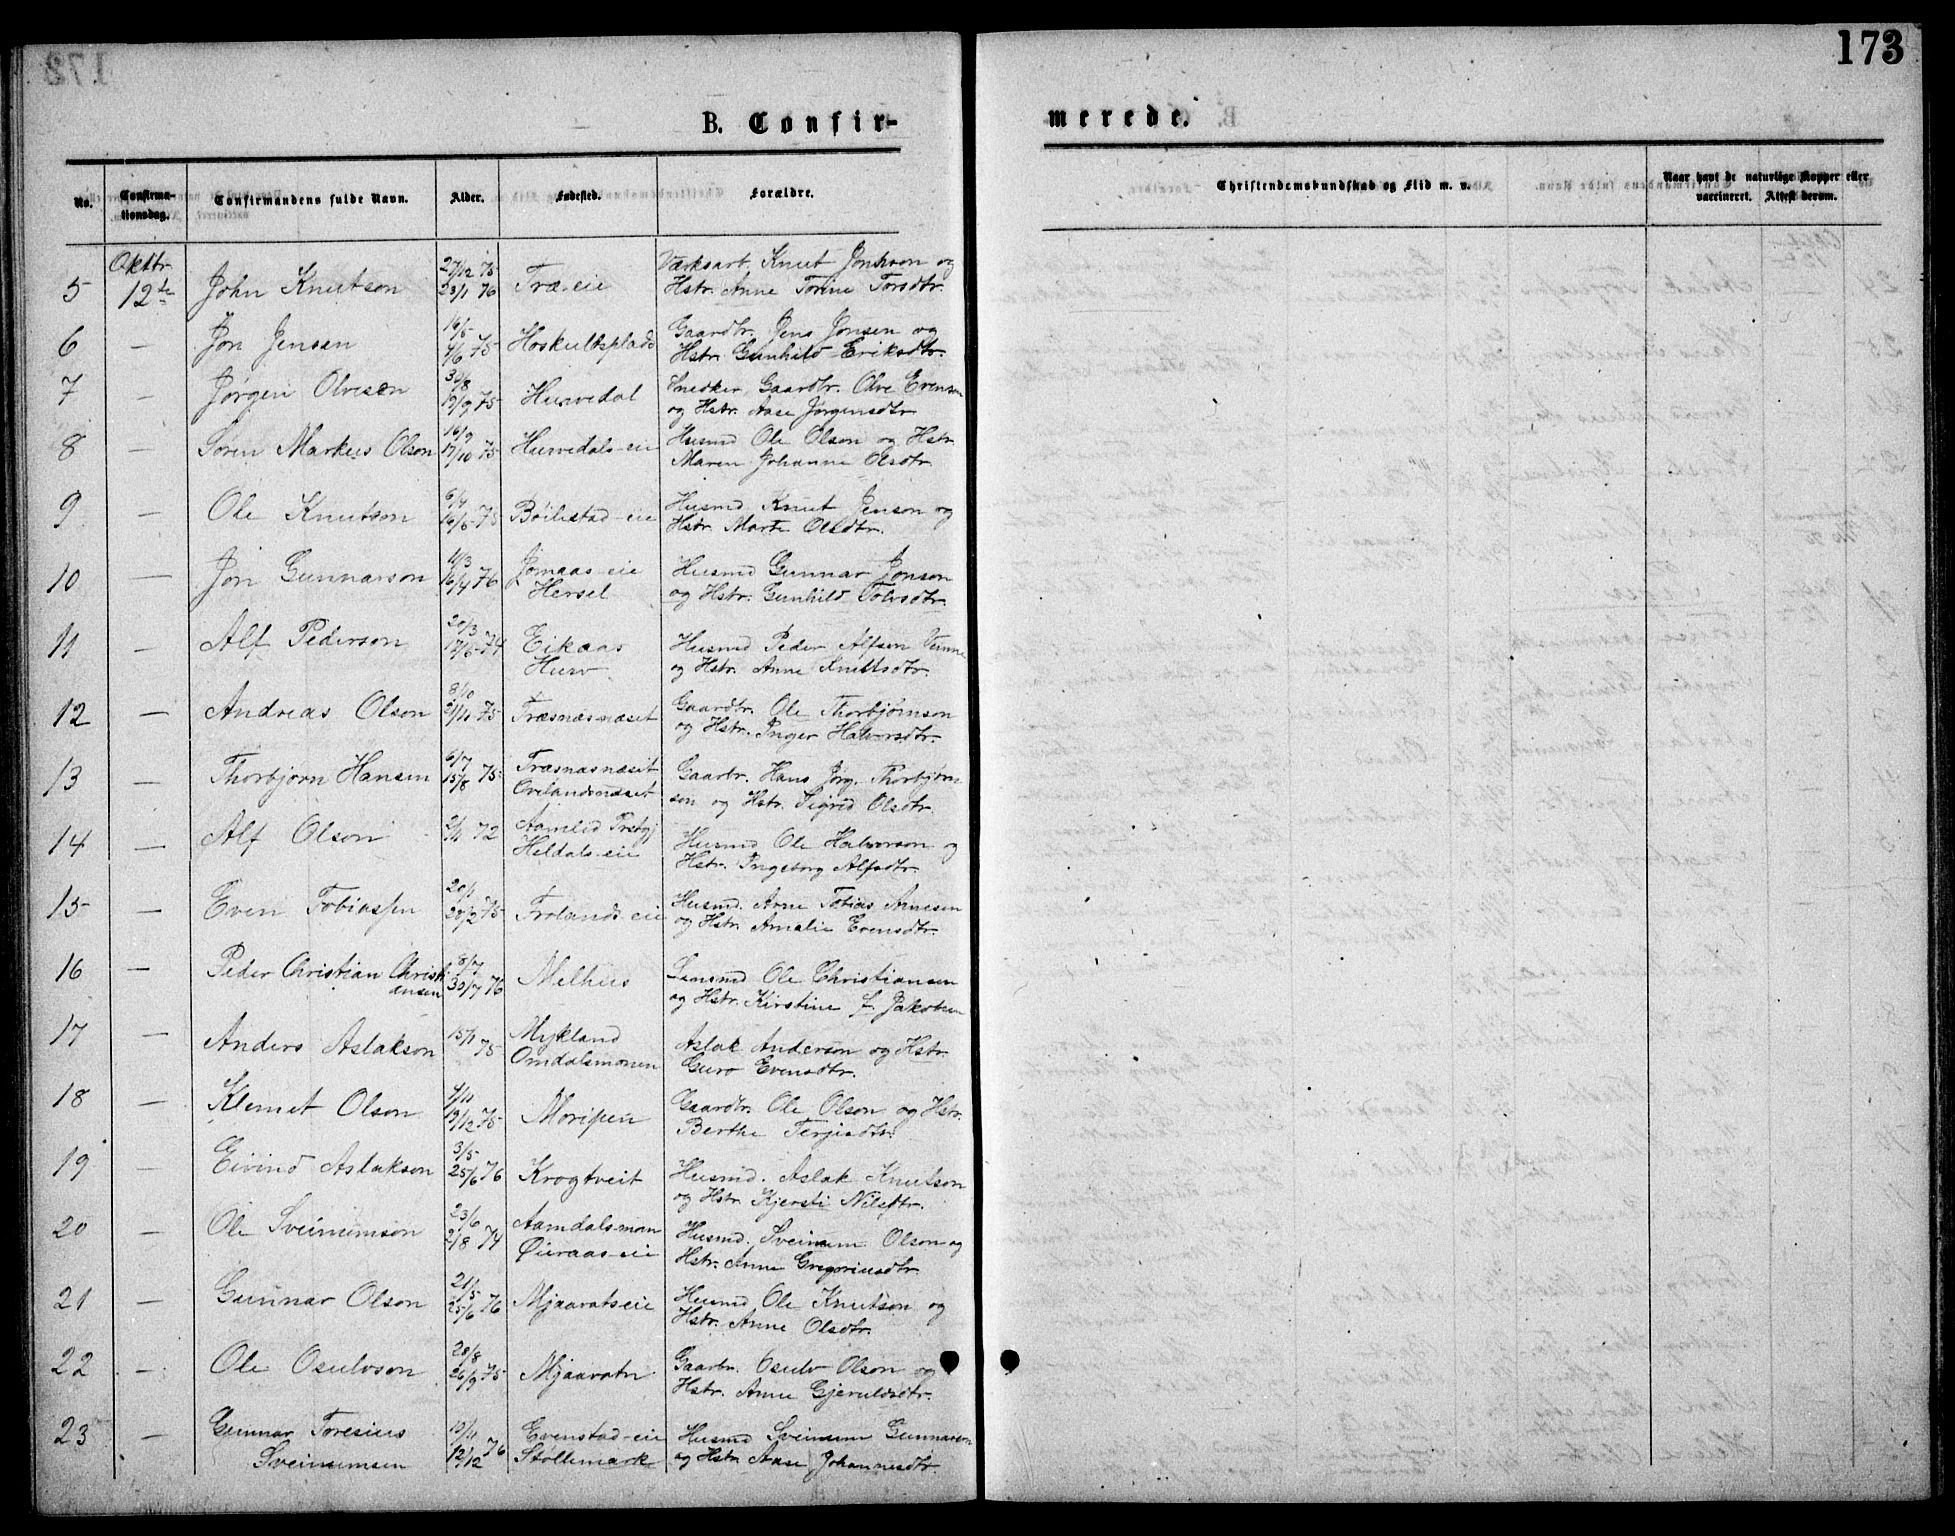 173
B. Confir-
merede.
No.
Confirma-
tionsdag.
Confirmandens fulde Navn.
Alder.
Fødested.
Forældre.
Christendomskundskab og Flid m. v.
Naar havt de naturlige Kopper eller
vaccineret. Attest derom.
Oktbr. 27/12 75 Værksarb. Knut Jonson og
5 12te John Knutson 23/1 76 Træ-eie Hstr. Anne Torine Torsdtr.
6 — Jon Jensen 16/5 4/6 75 Hoskuldsplads Gaardbr. Jens Jonsen og
Hstr. Gunhild Eriksdtr.
7 — Jørgen Olvesen 30/8 19/9 75 Husvedal Snedker, Gaardbr. Olve Evenson
og Hstr. Aase Jørgensdtr.
8 — Søren Markus Olson 16/9 17/10 75 Husvedals-eie Husmd Ole Olson og Hstr.
Maren Johanne Olsdtr.
9 — Ole Knutson 6/4 16/5 75 Bøilestad-eie Husmd Knut Jenson og
Hstr. Marte Olsdtr.
10 — Jon Gunnarson 11/3 16/4 76 Jomaas-eie Husmd Gunnar Jonson
Hersel og Hstr. Gunhild Tolvsdtr.
11 — Alf Pederson 20/3 74 Eikaas Husmd Peder Alfsen
Hurv og Hstr. Anne Knutsdtr.
12 — Andreas Olson 8/10 21/11 75 Træsnæsnæset Gaardbr. Ole Thorbjørnson
og Hstr. Inger Halvorsdtr.
13 — Thorbjørn Hansen 6/7 15/8 75 Træsnæsnæset Gaarbr. Hans Jørg. Thorbjørn
Ovelandsnæset son og Hstr. Sigrid Olsdtr.
14 — Alf Olson 2/11 72 Aamlid Prstgj Husmd Ole Halvorson og
Heldals-eie Hstr. Ingeborg Alfsdtr.
15 — Even Tobiassen 20/1 28/2 75 Frolands-eie Husmd. Arne Tobias Arnesen
og Hstr. Amalie Evensdtr.
16 — Peder Christian Christi 8/7 30/7 76 Melhus Lensmd Ole Christiansen
ansen og Hstr. Kirstine f. Jakobsen
17 — Anders Aslakson 15/1 75 Mykland Aslak Anderson og Hstr.
Omdalsmonen Guro Evensdtr.
18 — Klemet Olson 4/11 19/12 75 Moripen Gaardbr. Ole Olson og Hstr.
Berthe Terjesdtr.
19 — Eivind Aslakson 3/5 25/6 76 Krogtveit Husmd. Aslak Knutson
og Hstr. Kjersti Nilsdtr.
20 — Ole Sveinumson 23/6 2/8 74 Aamdalsmon Husmd. Sveinum Olson og
Øieraas-eie Hstr. Anne Gregoriusdtr.
21 — Gunnar Olson 21/5 25/6 76 Mjaavatseie Husmd Ole Knutson og
Hstr. Anne Olsdtr.
22 — Ole Osulvson 28/8 26/9 75 Mjaavatn Gaarbr. Osulv Olson og
Hstr. Anne Gjeruldsdtr.
23 — Gunnar Toresius 19/11 12/12 76 Evenstad-eie Husmd Sveinum Gunnarson
Sveinumsen Støllemark og Hstr. Aase Johannesdtr.